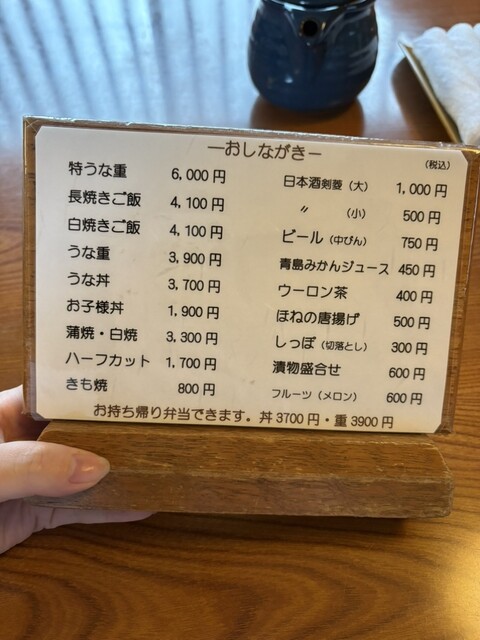 ―おしながき―
(税込)
特うな重 6,000円
長焼きご飯 4,100円
白焼きご飯 4,100円
うな重 3,900円
うな丼 3,700円
お子様丼 1,900円
蒲焼・白焼 3,300円
ハーフカット 1,700円
きも焼 800円
日本酒剣菱(大) 1,000円
〃 (小) 500円
ビール(中びん) 750円
青島みかんジュース 450円
ウーロン茶 400円
ほねの唐揚げ 500円
しっぽ(切落とし) 300円
漬物盛合せ 600円
フルーツ(メロン) 600円
お持ち帰り弁当できます。丼3700円・重3900円